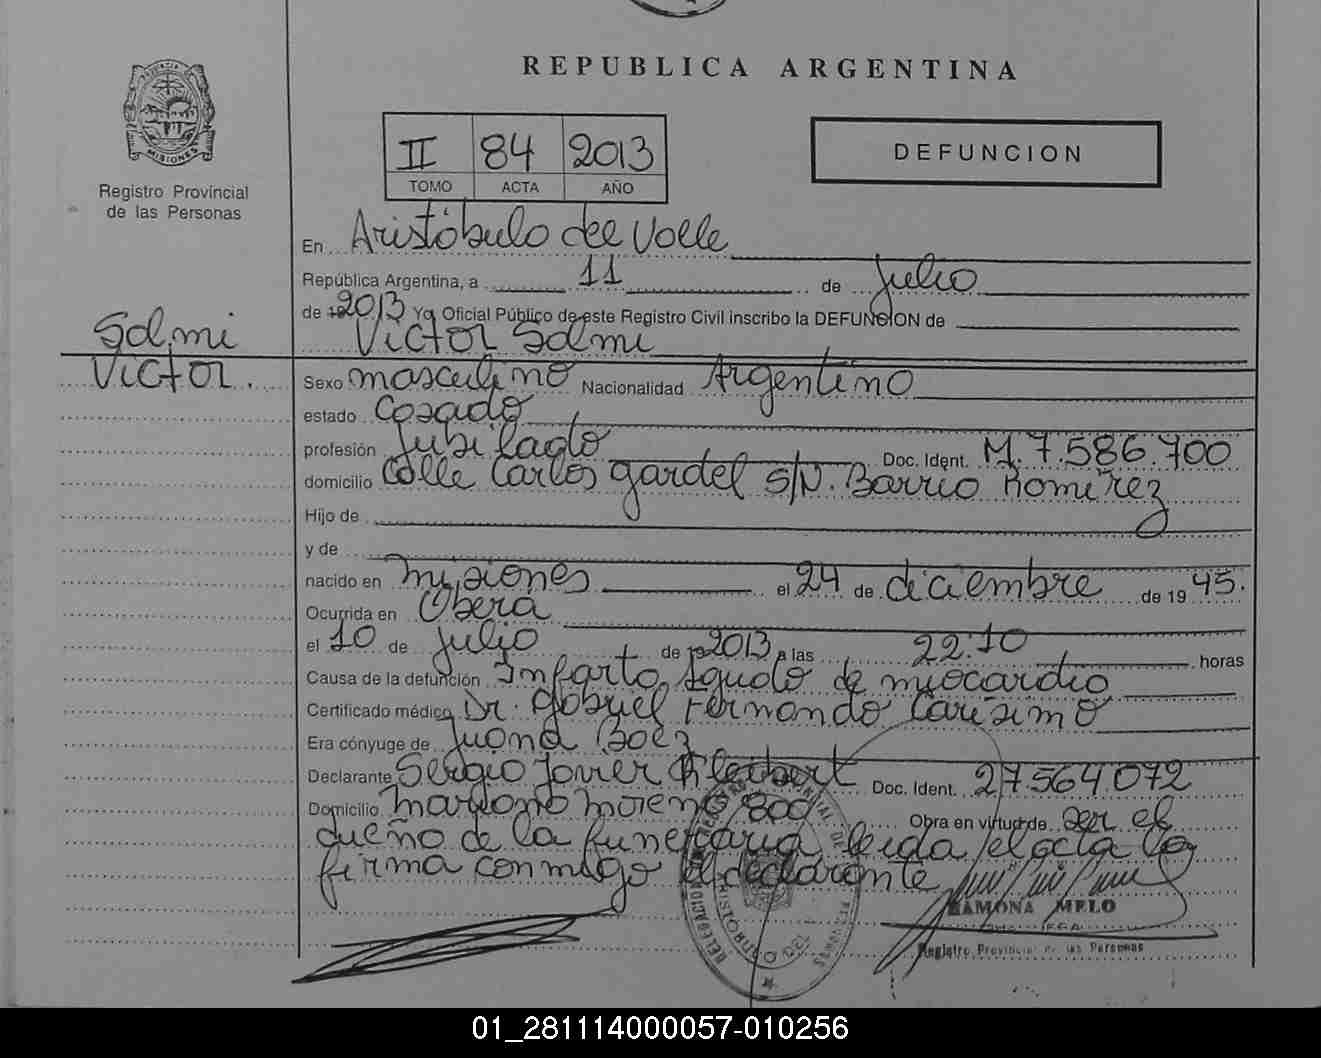 REPUBLICA ARGENTINA
MISIONES
Registro Provincial
de las Personas
II 84 2013
TOMO ACTA AÑO
DEFUNCION
En Aristóbulo del Valle
República Argentina, a 11 de Julio
de 19 2013 Yo, Oficial Público de este Registro Civil inscribo la DEFUNCION de
Victor Salmi
Salmi
Victor.
Sexo masculino Nacionalidad Argentino
estado Casado
profesión Jubilado Doc. Ident. M. 7.586.700
domicilio Calle Carlos gardel S/N. Barrio Ramirez
Hijo de
y de
nacido en misiones el 24 de diciembre de 19 45.
Ocurrida en Oberá
el 10 de julio de 19 2013 a las 22:10 horas
Causa de la defunción Infarto Agudo de miocardio
Certificado médico Dr. Gabriel Fernando Carísimo
Era cónyuge de Juana Baez
Declarante Sergio Javier Doc. Ident. 27564072
Domicilio mariano moreno 800 Obra en virtud de ser el
dueño de la funeraria leida el acta la
firma conmigo el declarante
RAMONA MELO
Registro Provincial de las Personas
01_281114000057-010256